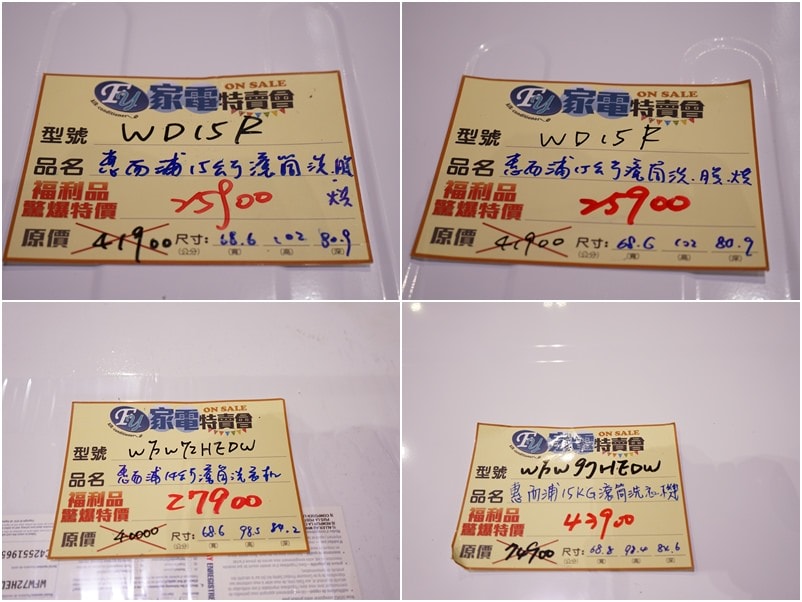 FU 家電特賣會 ON SALE
Air conditioner
型號 WD15R
品名 惠而浦15公斤滾筒洗.脫.烘
福利品
驚爆特價 25900
原價 41900 尺寸: 68.6 102 80.9
(公分) (寬) (高) (深)
FU 家電特賣會 ON SALE
Air conditioner
型號 WD15R
品名 惠而浦15公斤滾筒洗.脫.烘
福利品
驚爆特價 25900
原價 41900 尺寸: 68.6 102 80.9
(公分) (寬) (高) (深)
FU 家電特賣會 ON SALE
型號 WFW72HEDW
品名 惠而浦14公斤滾筒洗衣机
福利品
驚爆特價 27900
原價 40000 尺寸: 68.6 98.5
(公分) (寬) (高) (深)
WFW72HED
FU 家電特賣會 ON SALE
型號 WFW97HEDW
品名 惠而浦15KG滾筒洗衣機
福利品
驚爆特價 43900
原價 74900 尺寸: 68.8 98.4 82.6
(公分) (寬) (高) (深)